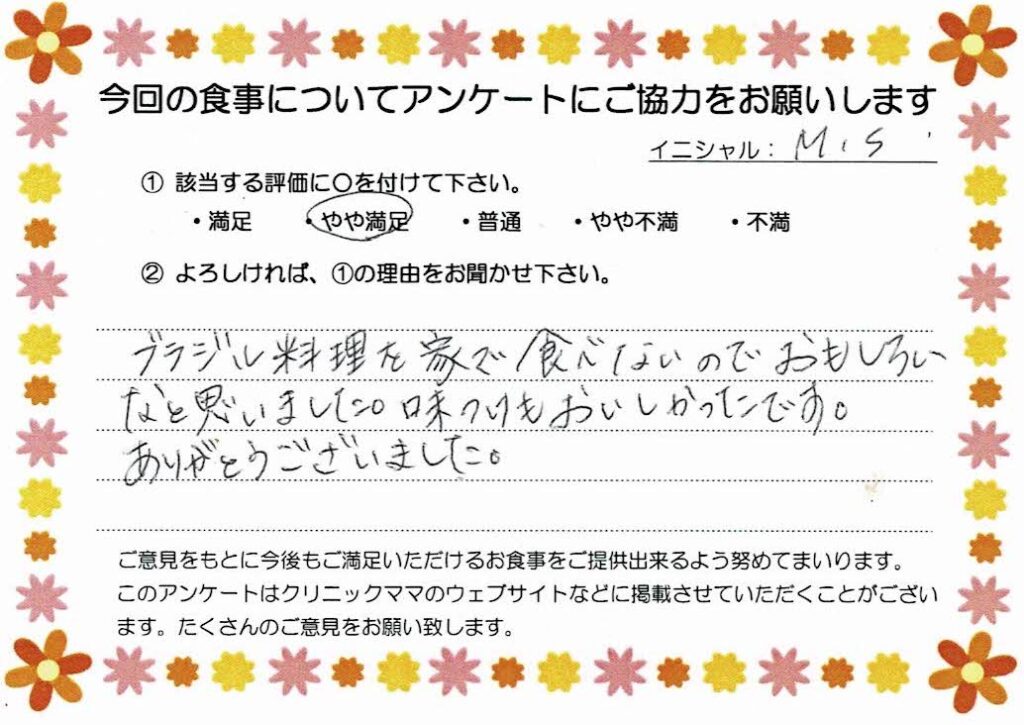 今回の食事についてアンケートにご協力をお願いします
イニシャル： M．S
① 該当する評価に〇を付けて下さい。
・満足 ・やや満足 ・普通 ・やや不満 ・不満
② よろしければ、①の理由をお聞かせ下さい。
ブラジル料理を家で食べないのでおもしろい
なと思いました。味つけもおいしかったです。
ありがとうございました。
ご意見をもとに今後もご満足いただけるお食事をご提供出来るよう努めてまいります。
このアンケートはクリニックママのウェブサイトなどに掲載させていただくことがござい
ます。たくさんのご意見をお願い致します。